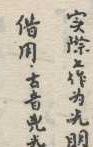 实际上作为光明
借用，古音兜光